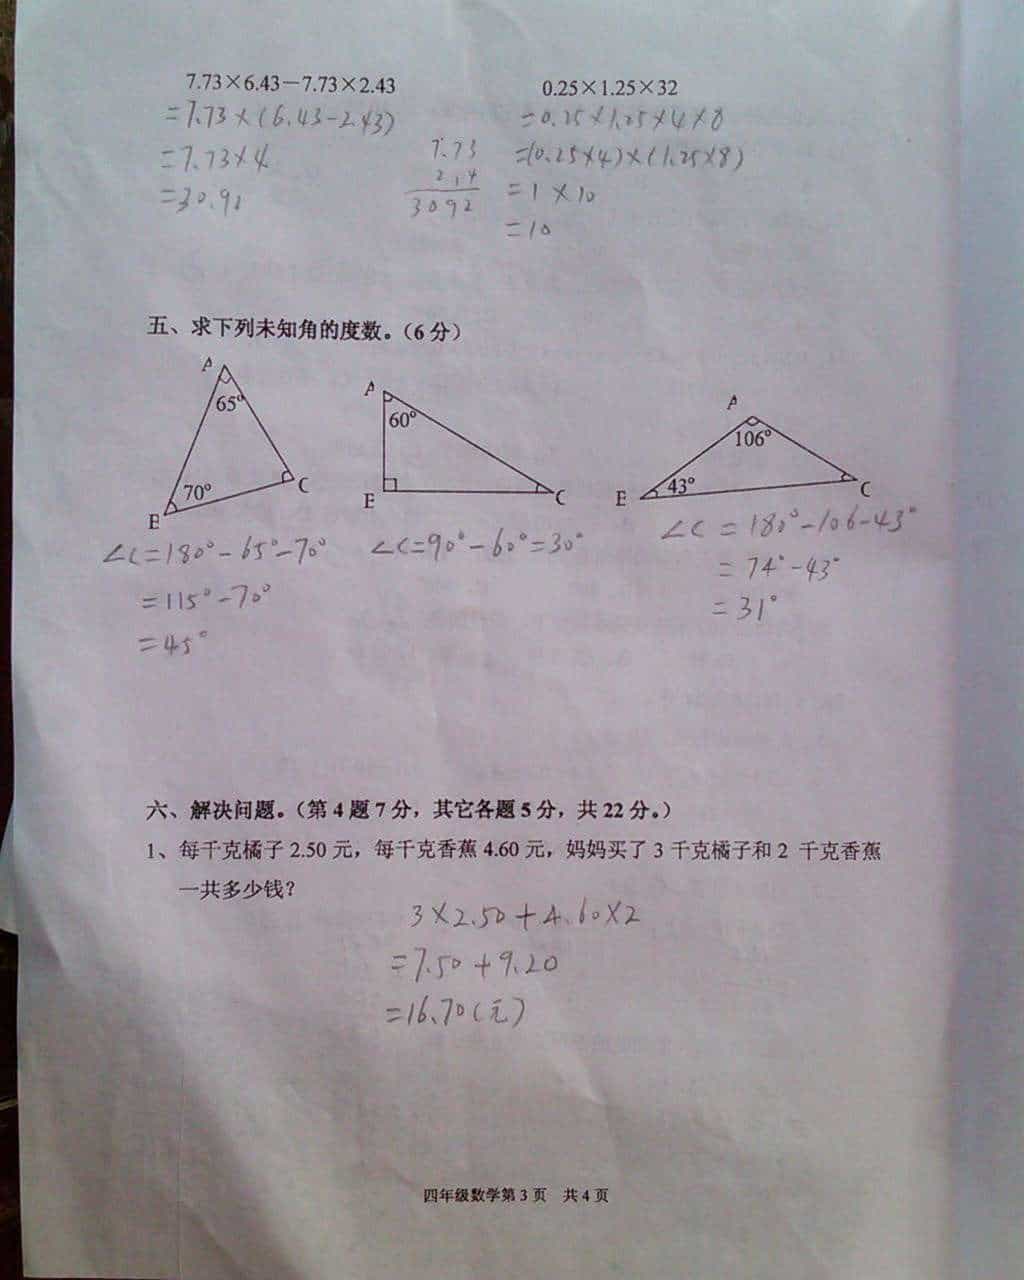 7.73×6.43－7.73×2.43
=7.73×(6.43-2.43)
=7.73×4
=30.92
7.73
2 1 4
3092
0.25×1.25×32
=0.25×1.25×4×8
=(0.25×4)×(1.25×8)
=1×10
=10
五、求下列未知角的度数。（6分）
A
65°
70°
B
C
A
60°
B
C
A
106°
43°
B
C
∠C=180°-65°-70°
=115°-70°
=45°
∠C=90°-60°=30°
∠C=180°-106-43°
=74°-43°
=31°
六、解决问题。（第4题7分，其它各题5分，共22分。）
1、每千克橘子2.50元，每千克香蕉4.60元，妈妈买了3千克橘子和2 千克香蕉
一共多少钱？
3×2.50+4.60×2
=7.50+9.20
=16.70(元)
四年级数学第3页 共4页